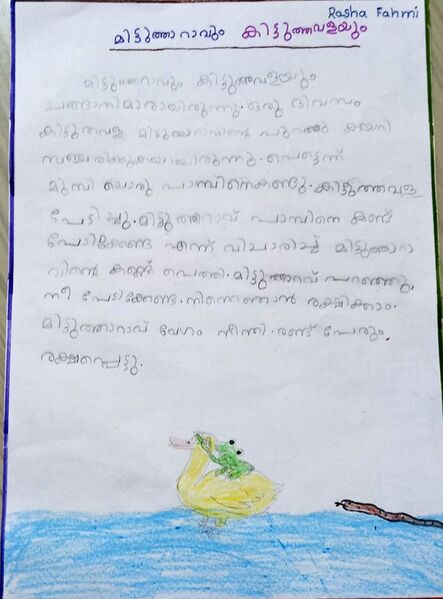 Rasha Fahmi
മിട്ടുത്താറാവും കിട്ടുത്തവളയും
മിട്ടുത്താറാവും കിട്ടുത്തവളയും
ചങ്ങാതിമാരായിരുന്നു. ഒരു ദിവസം
കിട്ടുത്തവള മിട്ടുത്താറാവിന്റെ പുറത്തു കയറി
സഞ്ചരിക്കുകയായിരുന്നു. പെട്ടെന്ന്
പാമ്പിനെകണ്ടു. കിട്ടുത്തവള
പേടിച്ചു. മിട്ടുത്താറാവ് പാമ്പിനെ കണ്ട്
പേടിക്കേണ്ട എന്ന് വിചാരിച്ച് മിട്ടുത്താറാ
വിന്റെ പൊത്തി. മിട്ടുത്താറാവ് പറഞ്ഞു,
നീ പേടിക്കേണ്ട. നിന്നെഞാൻ രക്ഷിക്കാം.
മിട്ടുത്താറാവ് വേഗം നീന്തി. രണ്ട് പേരും
രക്ഷപ്പെട്ടു.